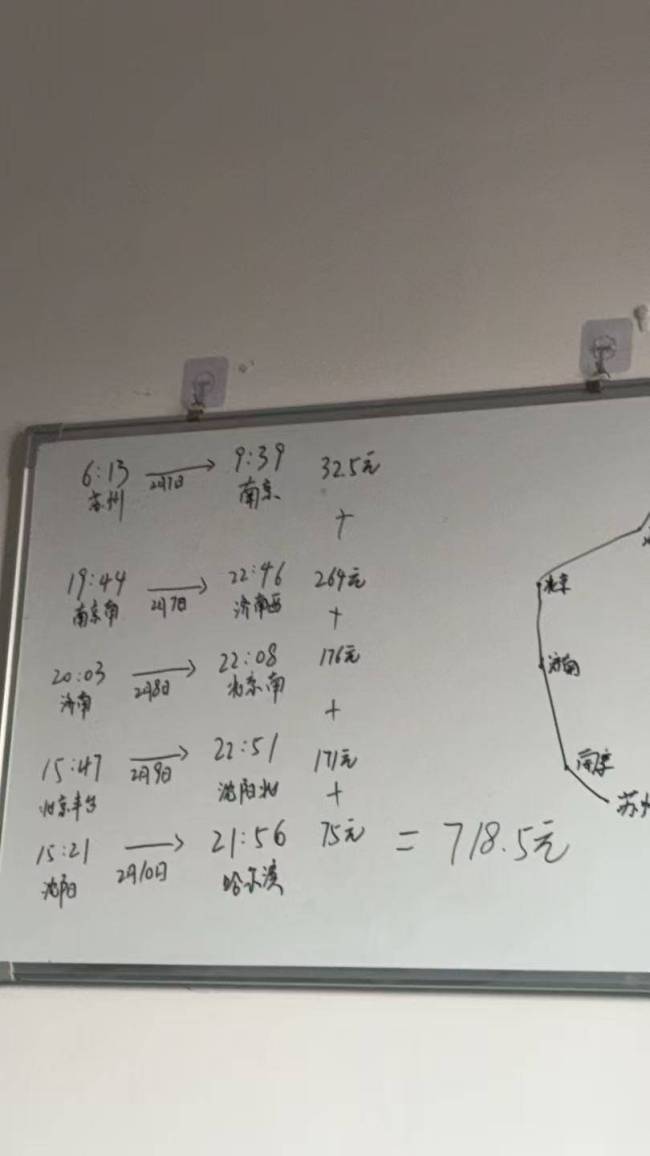 6:13 → 9:39 32.5元
苏州 2月7日 南京
+
19:44 → 22:46 264元
南京南 2月7日 济南西
+
20:03 → 22:08 176元
济南 2月8日 北京南
+
15:47 → 22:51 171元
北京丰台 2月9日 沈阳北
+
15:21 → 21:56 75元 = 718.5元
沈阳 2月10日 哈尔滨
北京
济南
南京
苏州